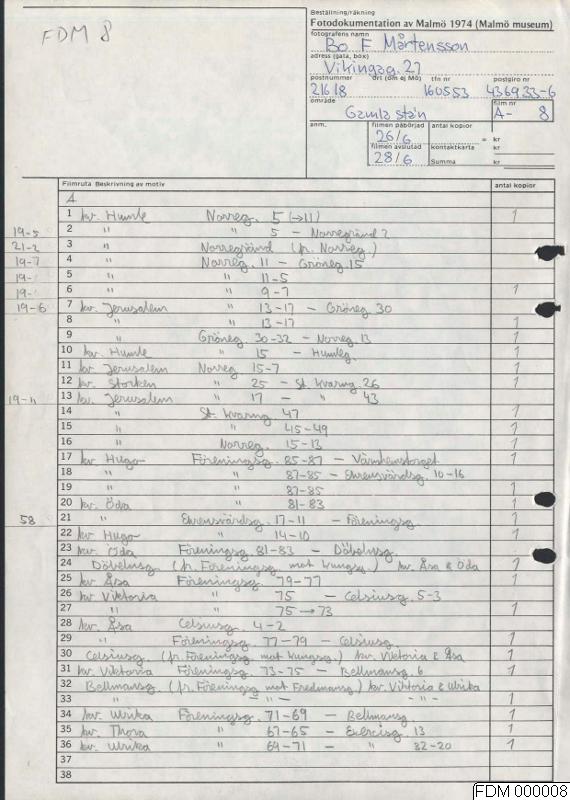 FDM 8
Beställning/räkning
Fotodokumentation av Malmö 1974 (Malmö museum)
fotografens namn
Bo F Mårtensson
adress (gata, box)
Vikingag. 27
postnummer ort (om ej Mö) tfn nr postgiro nr
21618 160553 436933-6
område film nr
Gamla stan A- 8
anm. filmen påbörjad antal kopior
26/6 = kr
filmen avslutad kontaktkarta kr
28/6 Summa kr
Filmruta Beskrivning av motiv antal kopior
A
1 kv. Humle Norreg. 5 (→11) 1
19-5 2 " " 5 - Norregränd 2
21-2 3 " Norregränd (fr. Norreg.)
19-7 4 " Norreg. 11 - Gröneg. 15
19- 5 " " 11-5
19- 6 " " 9-7 1
19-6 7 kv. Jerusalem " 13-17 - Gröneg. 30
8 " " 13-17 1
9 " Gröneg. 30-32 - Norreg. 13 1
10 kv. Humle " 15 - Humleg. 1
11 kv. Jerusalem Norreg. 15-7 1
12 kv. Storken " 25 - St. Kvarng. 26 1
19-11 13 kv. Jerusalem " 17 - " 43
14 " St. Kvarng. 47 1
15 " " 45-49 1
16 " Norreg. 15-13 1
17 kv. Hugo Föreningsg. 85-87 - Värnhemstorget 1
18 " " 87-85 - Ehrensvärdsg. 10-16
19 " " 87-85 1
20 kv. Öda " 81-83 1
58 21 " Ehrensvärdsg. 17-11 - Föreningsg.
22 kv. Hugo " 14-10 1
23 kv. Öda Föreningsg. 81-83 - Döbelnsg. 1
24 Döbelnsg. (fr. Föreningsg. mot Kungsg.) kv. Åsa & Öda 1
25 kv. Åsa Föreningsg. 79-77 1
26 kv. Viktoria " 75 - Celsiusg. 5-3 1
27 " " 75 → 73 1
28 kv. Åsa Celsiusg. 4-2
29 " Föreningsg. 77-79 - Celsiusg. 1
30 Celsiusg. (fr. Föreningsg. mot Kungsg.) kv. Viktoria & Åsa 1
31 kv. Viktoria Föreningsg. 73-75 - Bellmansg. 6 1
32 Bellmansg. (fr. Föreningsg. mot Fredmansg.) kv. Viktoria & Ulrika
33 " - " - - " - 1
34 kv. Ulrika Föreningsg. 71-69 - Bellmansg. 1
35 kv. Thora " 67-65 - Exercisg. 13 1
36 kv. Ulrika " 69-71 - " 22-20 1
37
38
FDM 000008